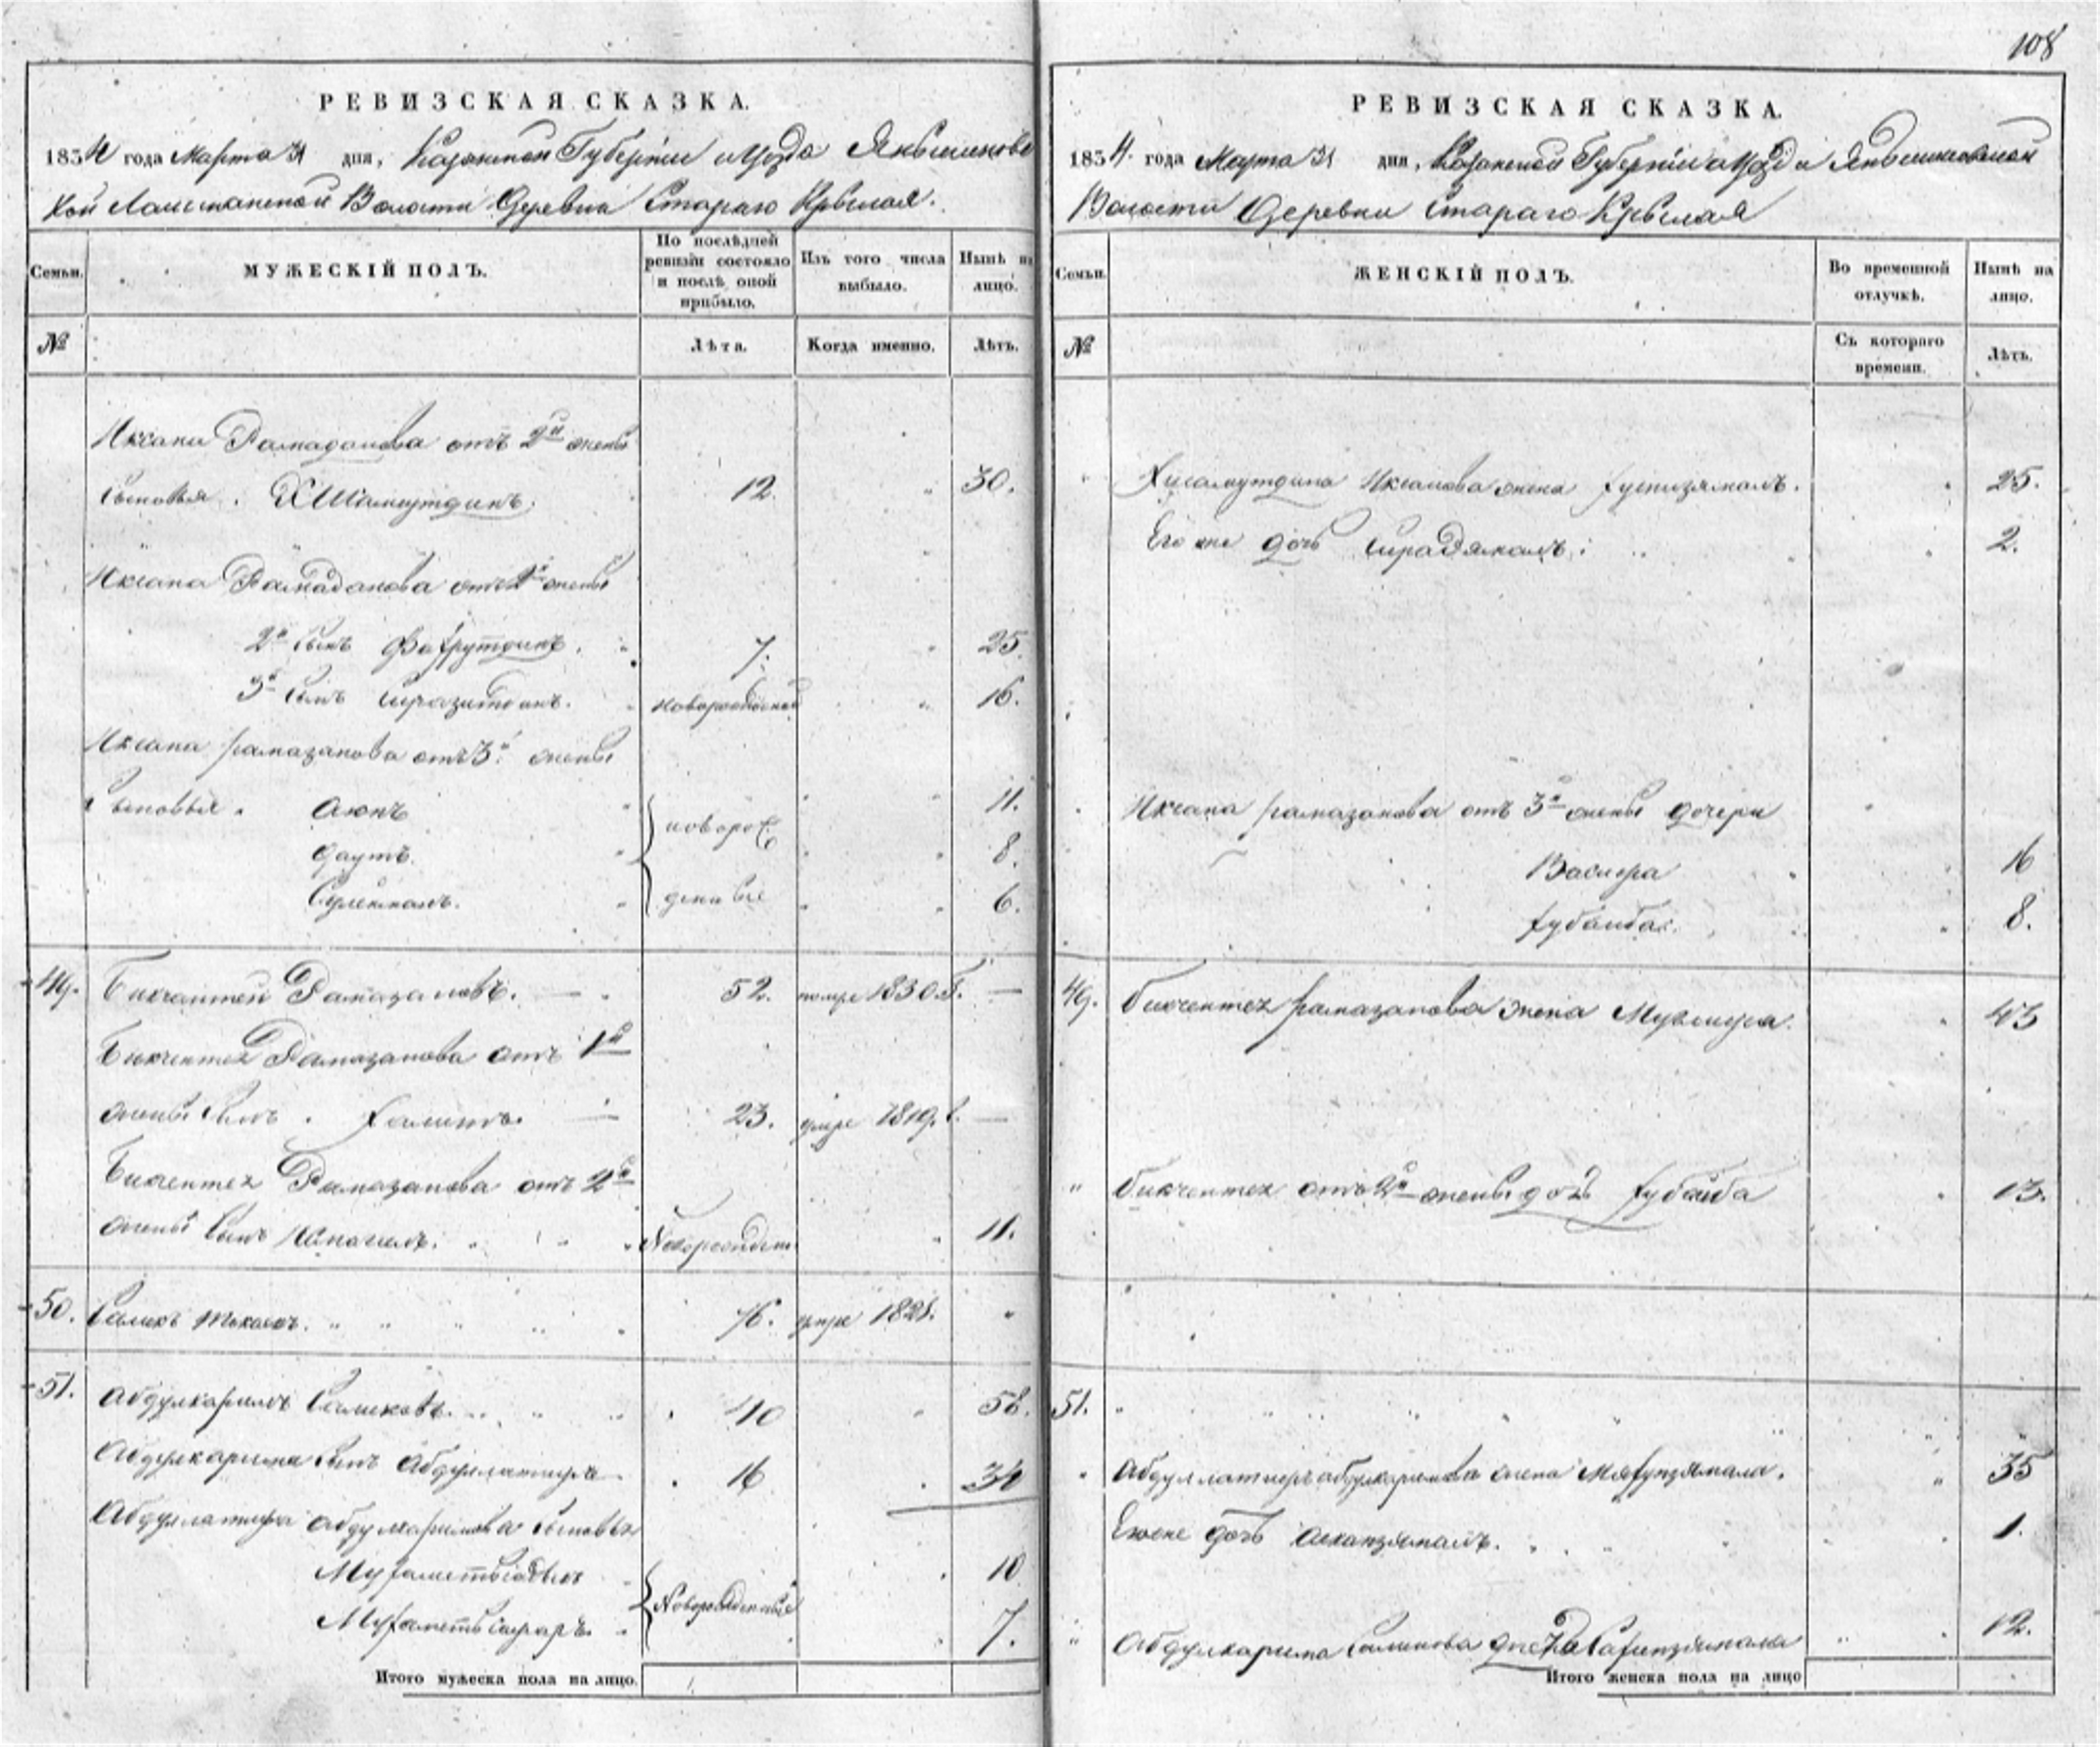 108
РЕВИЗСКАЯ СКАЗКА.
1834 года Марта 31 дня, Казанской Губернии и Уезда Янышевс
кой Лашманской Волости Деревни Стараго
Семьи.
МУЖЕСКІЙ ПОЛЪ.
По послѣдней ревизіи состояло и послѣ оной прибыло.
Изъ того числа выбыло.
Нынѣ на лицо.
№
Лѣта.
Когда именно.
Лѣтъ.
Иксана Рамаданова отъ 2й жены
сыновья. Хисамутдинъ. 12. 30.
Иксана Рамаданова отъ жены
2й сынъ Фахрутдинъ. 7. 25.
3й сынъ Сиразитдинъ. новорожденной 16.
Иксана Рамазанова отъ 3й жены
Сыновья. Аюпъ 11.
новорож
Даутъ. 8.
Сулейманъ. денные 6.
49. Бикчантей Рамазановъ. — 52. помре 1830 г. —
Бикчентея Рамазанова отъ 1й
жены сынъ. Халитъ. — 23. умре 1819. г. —
Бикчентея Рамазанова отъ 2й
жены сынъ Исмагилъ. Новорожден 11.
50. Саликъ 76. умре 1821.
51. Абдулкаримъ Саликовъ. 40 58.
Абдулкарима сынъ Абдуллатифъ 16 34
Абдуллатифа Абдулкаримова сыновья
Мухаметь 10
Новорожденные
Мухаметь 7.
Итого мужеска пола на лицо.
РЕВИЗСКАЯ СКАЗКА.
1834. года Марта 31 дня, Казанской Губернии и Уезда
Волости Деревни Стараго
Семьи.
ЖЕНСКІЙ ПОЛЪ.
Во временной отлучкѣ.
Нынѣ на лицо.
№
Съ котораго времени.
Лѣтъ.
Хисамутдина Иксанова жена Хуснизямалъ. 25.
Его же дочь 2.
Иксана Рамазанова отъ 3й жены дочери
Васифа 16
Хубайба. 8.
49. Бикчентея Рамазанова жена 43
Бикчентея отъ 2й жены дочь Хубайба 13.
51.
Абдуллатифа Абдулкаримова жена 35
Его же дочь 1.
Абдулкарима Саликова 12.
Итого женска пола на лицо